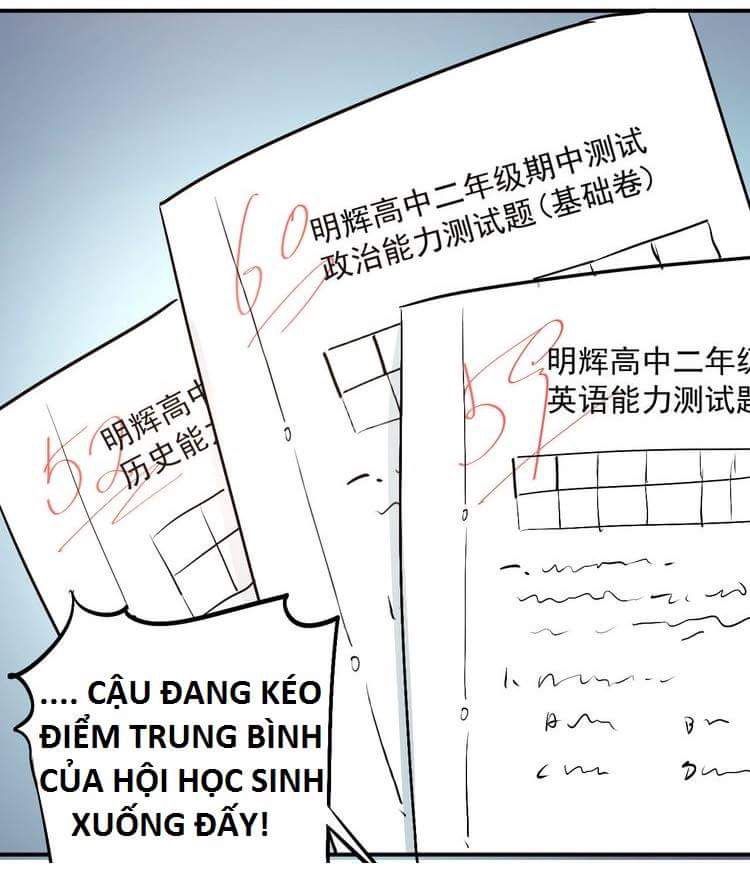 60
明辉高中二年级期中测试
政治能力测试题(基础卷)
52
明辉高中
历史能
59
明辉高中二年级
英语能力测试题
一.
二.
1.
A
B
C
D
.... CẬU ĐANG KÉO
ĐIỂM TRUNG BÌNH
CỦA HỘI HỌC SINH
XUỐNG ĐẤY!